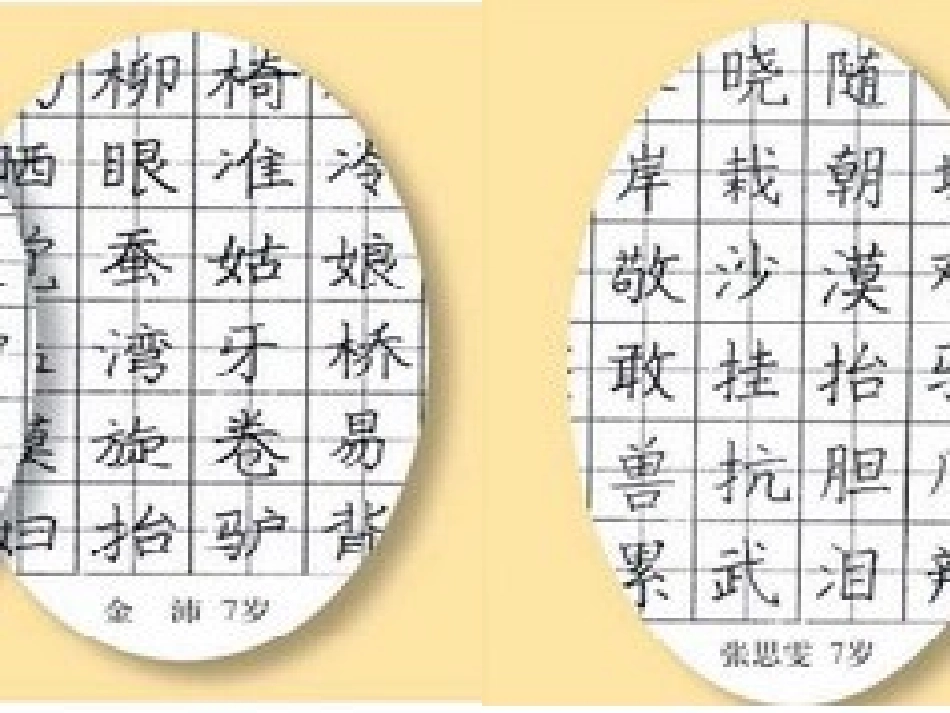 柳 椅
晒 眼 准 冷
蚕 姑 娘
湾 牙 桥
漠 旋 卷 易
妇 抬 驴 背
金 沛 7岁
晓 随
岸 栽 朝
敬 沙 漠
敢 挂 抬
兽 抗 胆
累 武 泪
张思雯 7岁